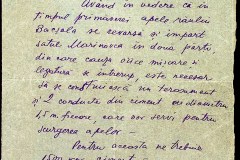 Având în vedere că în
timpul primăverii apele râului
Bacșala se revarsă și împart
satul Marinoaca în două părți,
din care cauză orice mișcare și
legătură se întrerup, este necesar
să se construiască un terasament
și 2 conducte din ciment cu diametru
45 m fiecare, care vor servi pentru
scurgerea apelor –
Pentru aceasta ne trebuie